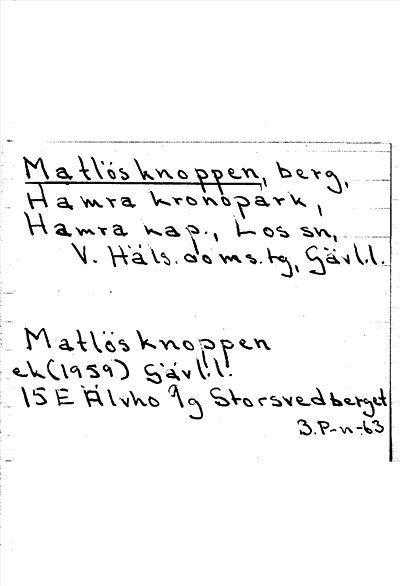 Matlösknoppen, berg,
Hamra kronopark,
Hamra kap., Los sn,
V. Häls. doms.tg, Gävl.l.
Matlösknoppen
ek (1959) Gävl.l.
15 E Älvho 9g Storsvedberget
3.P-n-63